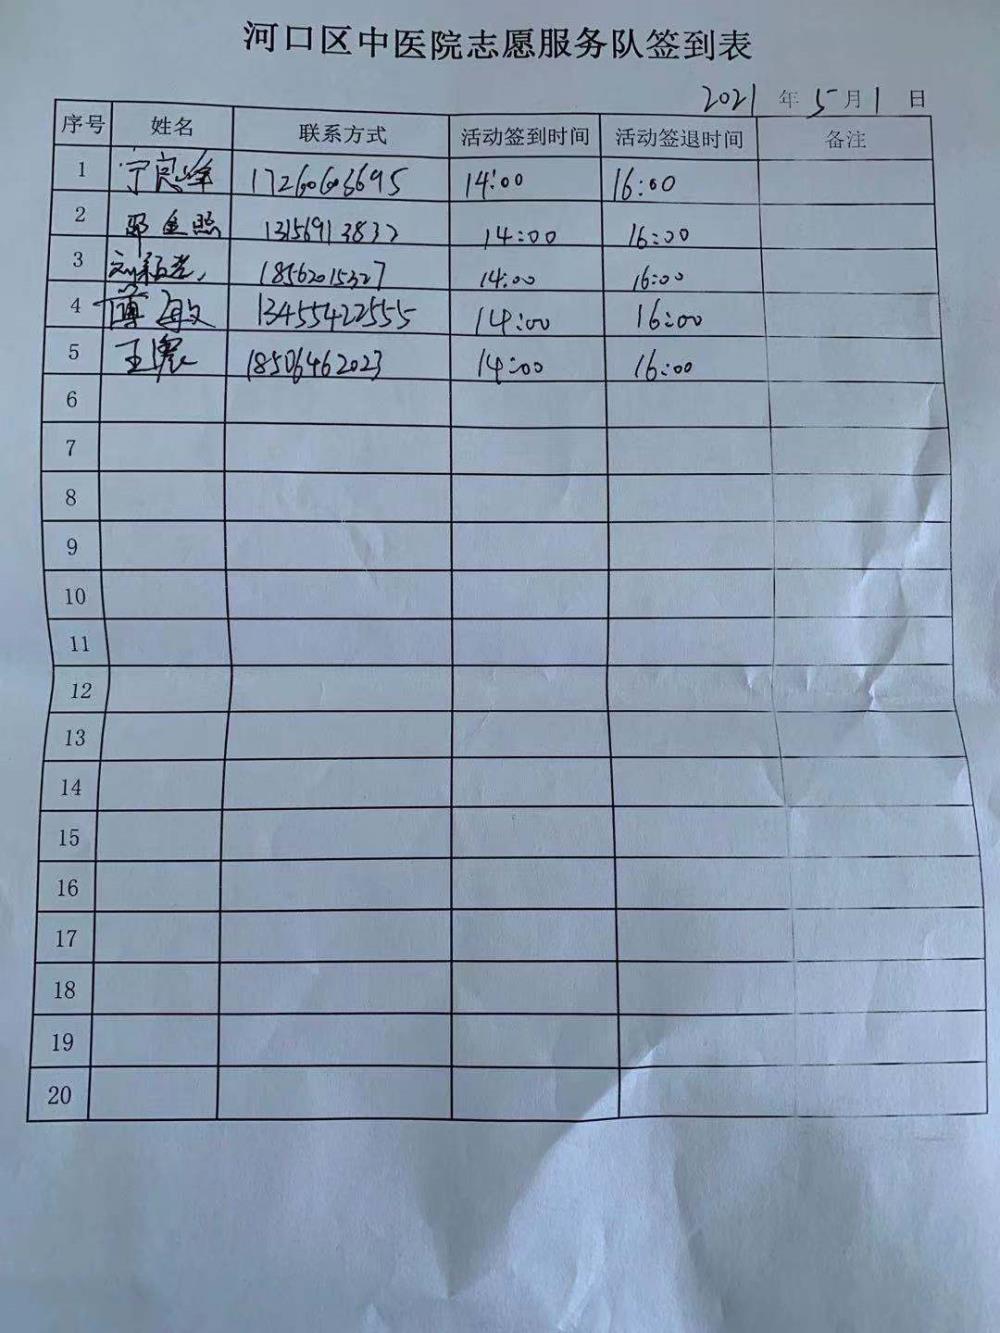 河口区中医院志愿服务队签到表
2021 年 5 月 1 日
序号 姓名 联系方式 活动签到时间 活动签退时间 备注
1 宁 峰 17260603695 14:00 16:00
2 金照 13156913832 14:00 16:00
3 刘 18562015327 14:00 16:00
4 薄敏 13455422555 14:00 16:00
5 王 18506462023 14:00 16:00
6
7
8
9
10
11
12
13
14
15
16
17
18
19
20